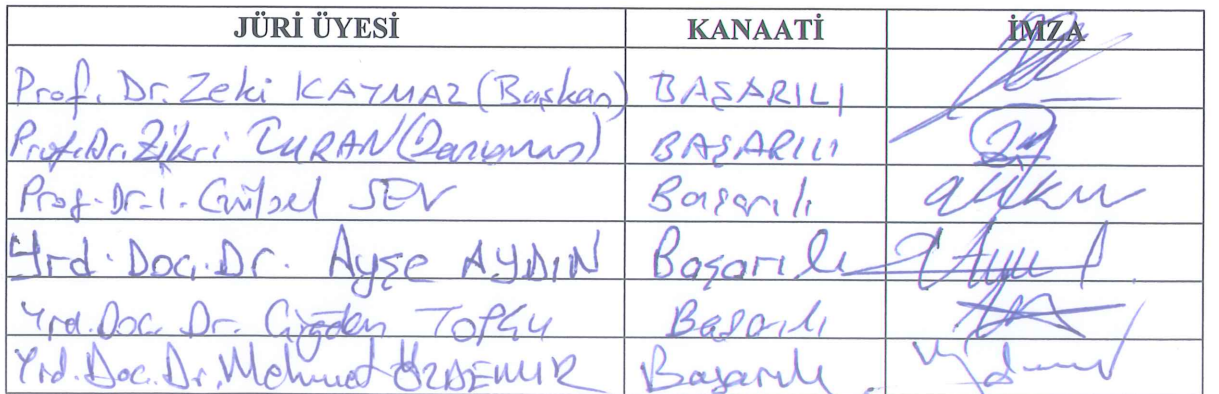 JÜRİ ÜYESİ KANAATİ İMZA
Prof. Dr. Zeki KAYMAZ (Başkan) BAŞARILI
Prof. Dr. Zikri TURAN (Danışman) BAŞARILI
Prof. Dr. İ. Gülsel SEV Başarılı
Yrd. Doç. Dr. Ayşe AYDIN Başarılı
Yrd. Doç. Dr. Çiğdem TOPÇU Başarılı
Yrd. Doç. Dr. Mehmet ÖZDEMİR Başarılı